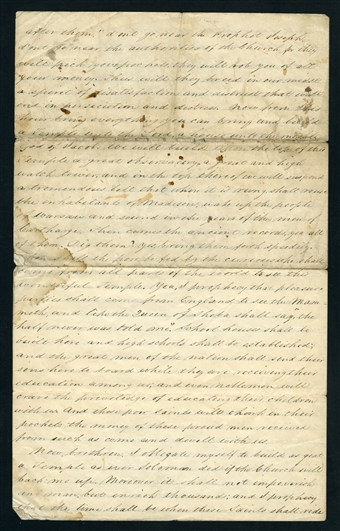 after them," "dont go near the Prophet Joseph,
dont go near the authorities of the Church, for they
will pick your pockets, they will rob you of all
your money," Thus will they breed in our midst
a spirit of disaffection and distrust that will
end in persecution and distress. Now from this
hour bring everything you can bring and build
a Temple
God of Jacob. We will build upon the top of this
Temple a great observatory, a great and high
watch tower, and in the top thereof we will suspend
a tremendous bell that when it is rung shall rouse
the inhabitants of Madison, wake up the people
of Warsaw and sound in the ears of the men of
Carthage. Then comes the ancient records, yea all
of them, Dig them? Yes, bring them forth speedily.
by the curiosities shall
come from all parts of the world to see this
wonderful Temple. Yea, I prophecy that pleasure
parties shall come from England to see the Mam
moth, and like the Queen of Sheba shall say "the
half never was told me." School houses shall be
built here and high schools shall be established,
and the great men of the nation shall send their
sons here to board while they are receiving their
education among us; and even noblemen will
crave the priveledge of educating their children
with us. And these poor Saints will chink in their
pockets the money of these proud men received
from such as come and dwell with us.
Now, brethren, I obligate myself to build as great
a Temple as ever Solomon did if the Church will
back me up. Moreover it shall not impoverish
any man, but enrich thousands; and I prophecy
that the time shall be when these Saints shall ride